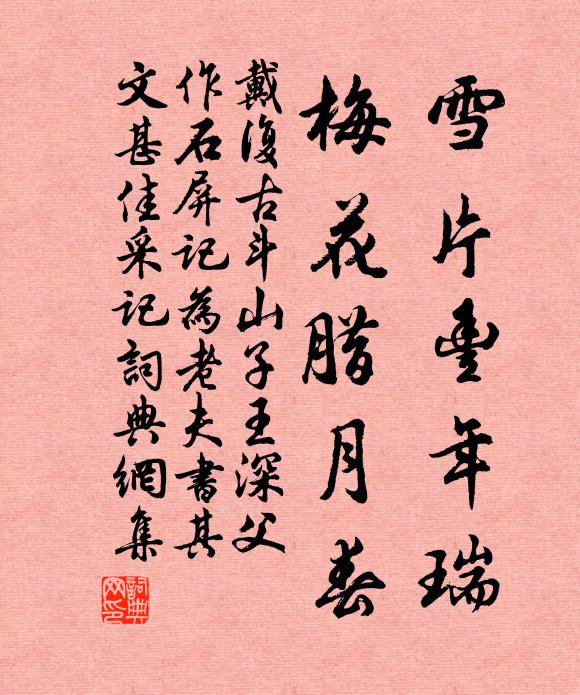 雪片豊年瑞
梅花腊月春
戴復古斗山子王深父
作石屏記為老夫書其
文甚佳采記詞典網集
詞典
网印